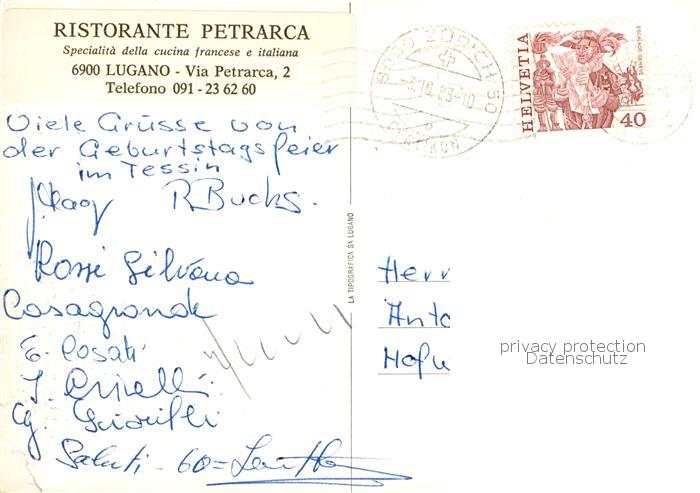 RISTORANTE PETRARCA
Specialità della cucina francese e italiana
6900 LUGANO - Via Petrarca, 2
Telefono 091 - 23 62 60
Viele Grüsse von
der Geburtstagsfeier
im Tessin
R Buchs.
Rossi Silvana
Casagrande
E. Rosati
Saluti - 60 =
LA TIPOGRAFICA SA LUGANO
8050 ZÜRICH 50
OERLIKON
HELVETIA
ESCALADE GENÈVE
40
Herr
Anto
Hofw
privacy protection
Datenschutz